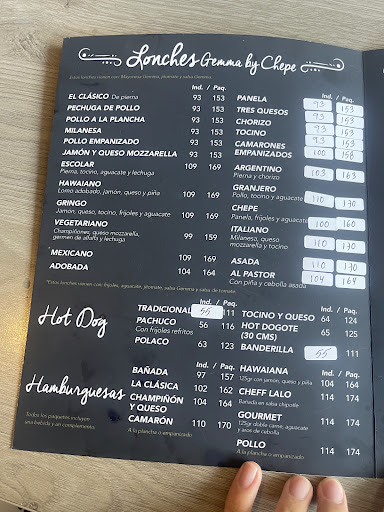 Lonches Gemma by Chepe
Estos lonches vienen con: Mayonesa Gemma, jitomate y salsa Gemma.
Ind. / Paq.
EL CLÁSICO De pierna 93 153
PECHUGA DE POLLO 93 153
POLLO A LA PLANCHA 93 153
MILANESA 93 153
POLLO EMPANIZADO 93 153
JAMÓN Y QUESO MOZZARELLA 93 153
ESCOLAR 109 169
Pierna, tocino, aguacate y lechuga
HAWAIANO
Lomo adobado, jamón, queso y piña 109 169
GRINGO
Jamón, queso, tocino, frijoles y aguacate 109 169
VEGETARIANO
Champiñones, queso mozzarella, 99 159
germen de alfalfa y lechuga
*MEXICANO 109 169
*ADOBADA 104 164
*Estos lonches vienen con: frijoles, aguacate, jitomate, salsa Gemma y salsa de tomate.
Ind. / Paq.
PANELA 93 153
TRES QUESOS 93 153
CHORIZO 93 153
TOCINO 93 153
CAMARONES
EMPANIZADOS 100 158
ARGENTINO 103 163
Pierna y chorizo
GRANJERO
Pollo, tocino y aguacate 110 170
CHEPE
Panela, frijoles y aguacate 100 160
ITALIANO
Milanesa, queso 110 170
mozzarella y tocino
ASADA 110 170
AL PASTOR 104 164
Con piña y cebolla asada
Hot Dog
Ind. / Paq.
TRADICIONAL 55 111
PACHUCO 56 116
Con frijoles refritos
POLACO 63 123
Ind. / Paq.
TOCINO Y QUESO 64 124
HOT DOGOTE 65 125
(30 CMS)
BANDERILLA 55 111
Hamburguesas
Todos los paquetes incluyen
una bebida y un complemento.
Ind. / Paq.
BAÑADA 97 157
LA CLÁSICA 102 162
CHAMPIÑÓN 104 164
Y QUESO
CAMARÓN 110 170
A la plancha o empanizado
Ind. / Paq.
HAWAIANA
125gr con jamón, queso y piña 104 164
CHEFF LALO 114 174
Bañada en salsa chipotle
GOURMET
125gr doble carne, aguacate 114 174
y aros de cebolla
POLLO 114 174
A la plancha o empanizado